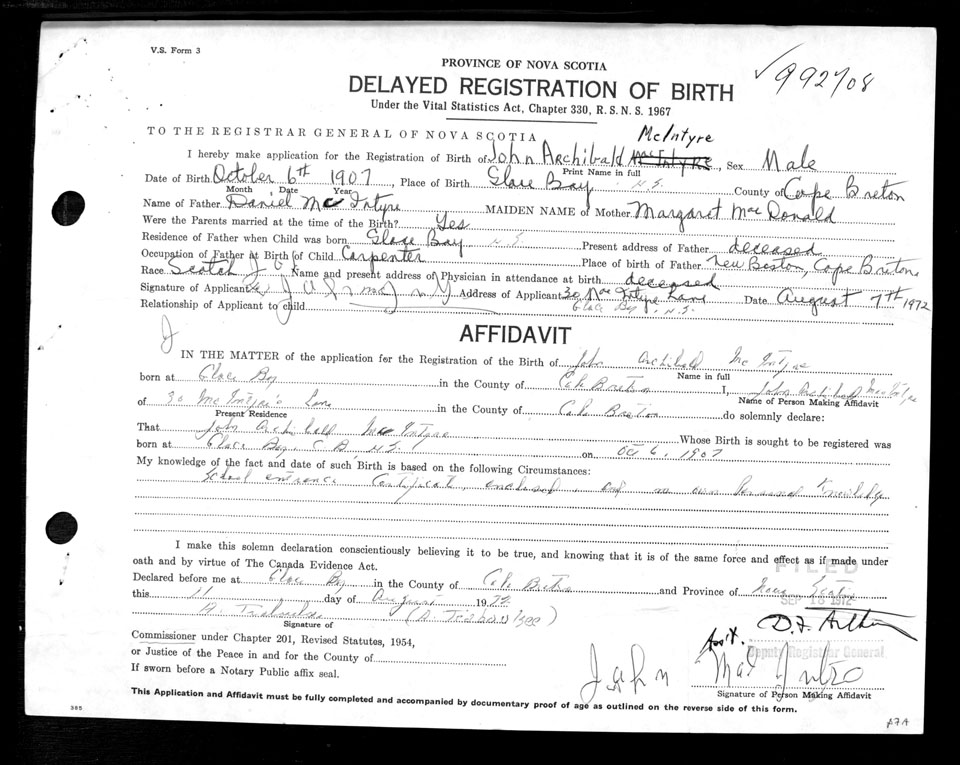 V.S. Form 3
✓992/08
PROVINCE OF NOVA SCOTIA
DELAYED REGISTRATION OF BIRTH
Under the Vital Statistics Act, Chapter 330, R.S.N.S. 1967
TO THE REGISTRAR GENERAL OF NOVA SCOTIA
McIntyre
I hereby make application for the Registration of Birth of John Archibald McIntyre, Sex Male
Print Name in full
Date of Birth October 6th 1907, Place of Birth Glace Bay N.S. County of Cape Breton
Month Date Year
Name of Father Daniel McIntyre MAIDEN NAME of Mother Margaret MacDonald
Were the Parents married at the time of the Birth? Yes
Residence of Father when Child was born Glace Bay N.S. Present address of Father deceased
Occupation of Father at Birth of Child Carpenter Place of birth of Father New Boston, Cape Breton
Race Scotch Name and present address of Physician in attendance at birth deceased
Signature of Applicant Address of Applicant 30 MacIntyre Lane Date August 7th 1972
Relationship of Applicant to child Glace Bay, N.S.
AFFIDAVIT
IN THE MATTER of the application for the Registration of the Birth of John Archibald McIntyre
Name in full
born at Glace Bay in the County of Cape Breton I, John Archibald MacIntyre
Name of Person Making Affidavit
of 30 McIntyre's Lane in the County of Cape Breton do solemnly declare:
Present Residence
That John Archibald MacIntyre Whose Birth is sought to be registered was
born at Glace Bay, C.B., N.S. on Oct 6, 1907
My knowledge of the fact and date of such Birth is based on the following Circumstances:
School entrance Certificate, enclosed, and my own Personal Knowledge
I make this solemn declaration conscientiously believing it to be true, and knowing that it is of the same force and effect as if made under
oath and by virtue of The Canada Evidence Act.
FILED
Declared before me at Glace Bay in the County of Cape Breton and Province of Nova Scotia
SEP 18 1972
this 11 day of August 1972
Signature of
Commissioner under Chapter 201, Revised Statutes, 1954,
Ass't.
Deputy Registrar General
or Justice of the Peace in and for the County of
If sworn before a Notary Public affix seal.
John
Signature of Person Making Affidavit
This Application and Affidavit must be fully completed and accompanied by documentary proof of age as outlined on the reverse side of this form.
365
A7A